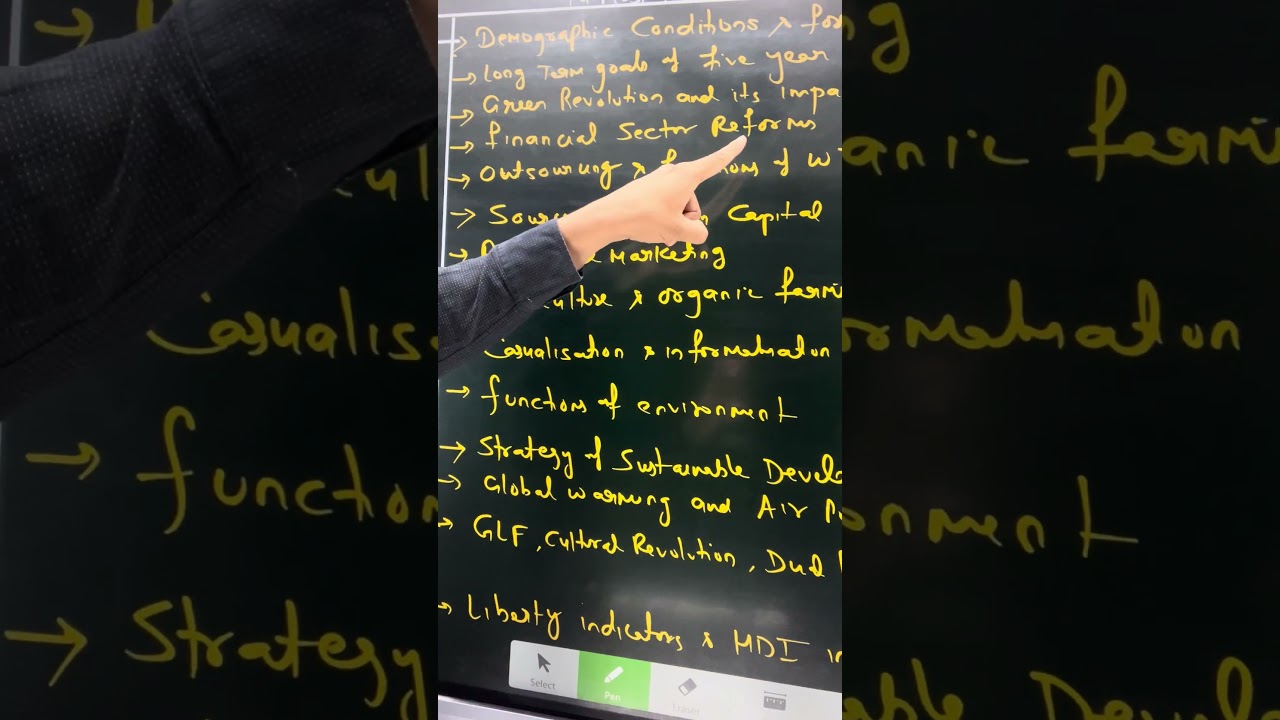 → Demographic Conditions & for
→ Long Term goals of five year
→ Green Revolution and its Impa
→ financial Sector Reforms
→ Outsourcing & of W
→ Sour Capital
→ Marketing
culture & organic farmi
casualisation & informalisation
→ functions of environment
→ Strategy of Sustainable Develo
→ Global warming and Air P
→ GLF, Cultural Revolution, Dual
→ Liberty indicators & HDI in
Select
Pen
Eraser